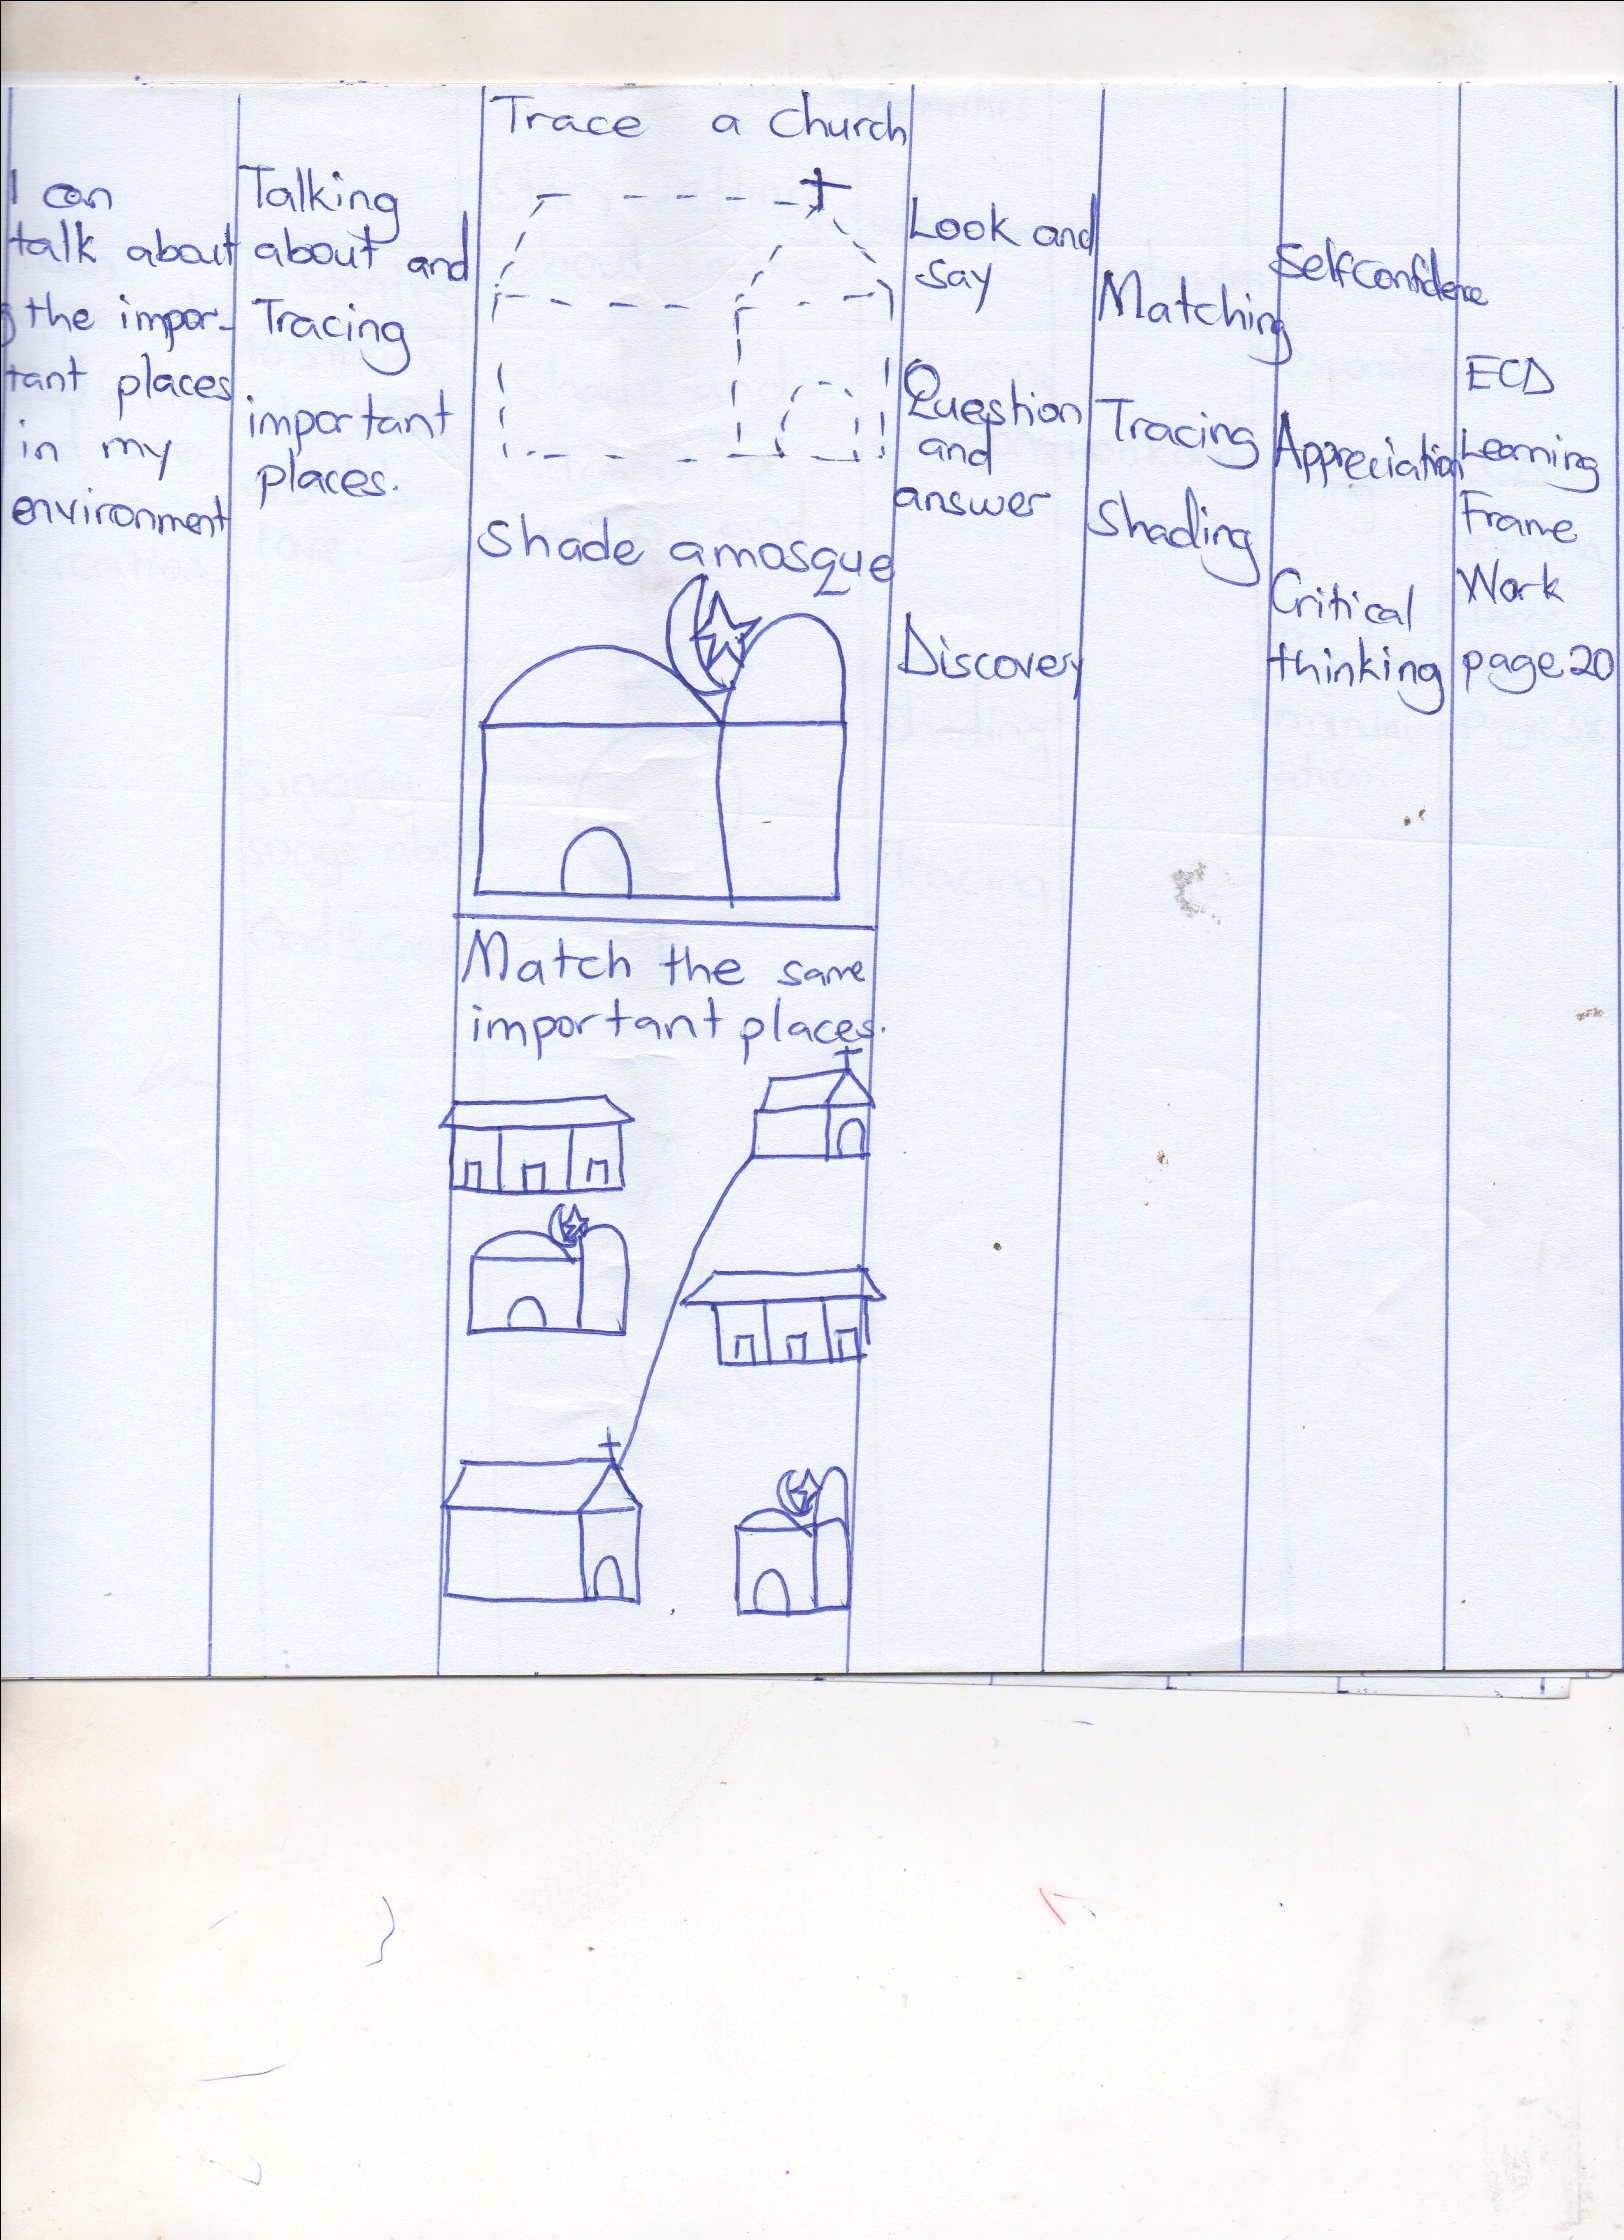 I can
talk about
g the impor-
tant places
in my
environment
Talking
about and
Tracing
important
places.
Trace a Church
Shade a mosque
Match the same
important places.
Look and
say
Question
and
answer
Discovery
Matching
Tracing
Shading
Selfconfidence
Appreciation
Critical
thinking
ECD
Learning
Frame
Work
page 20